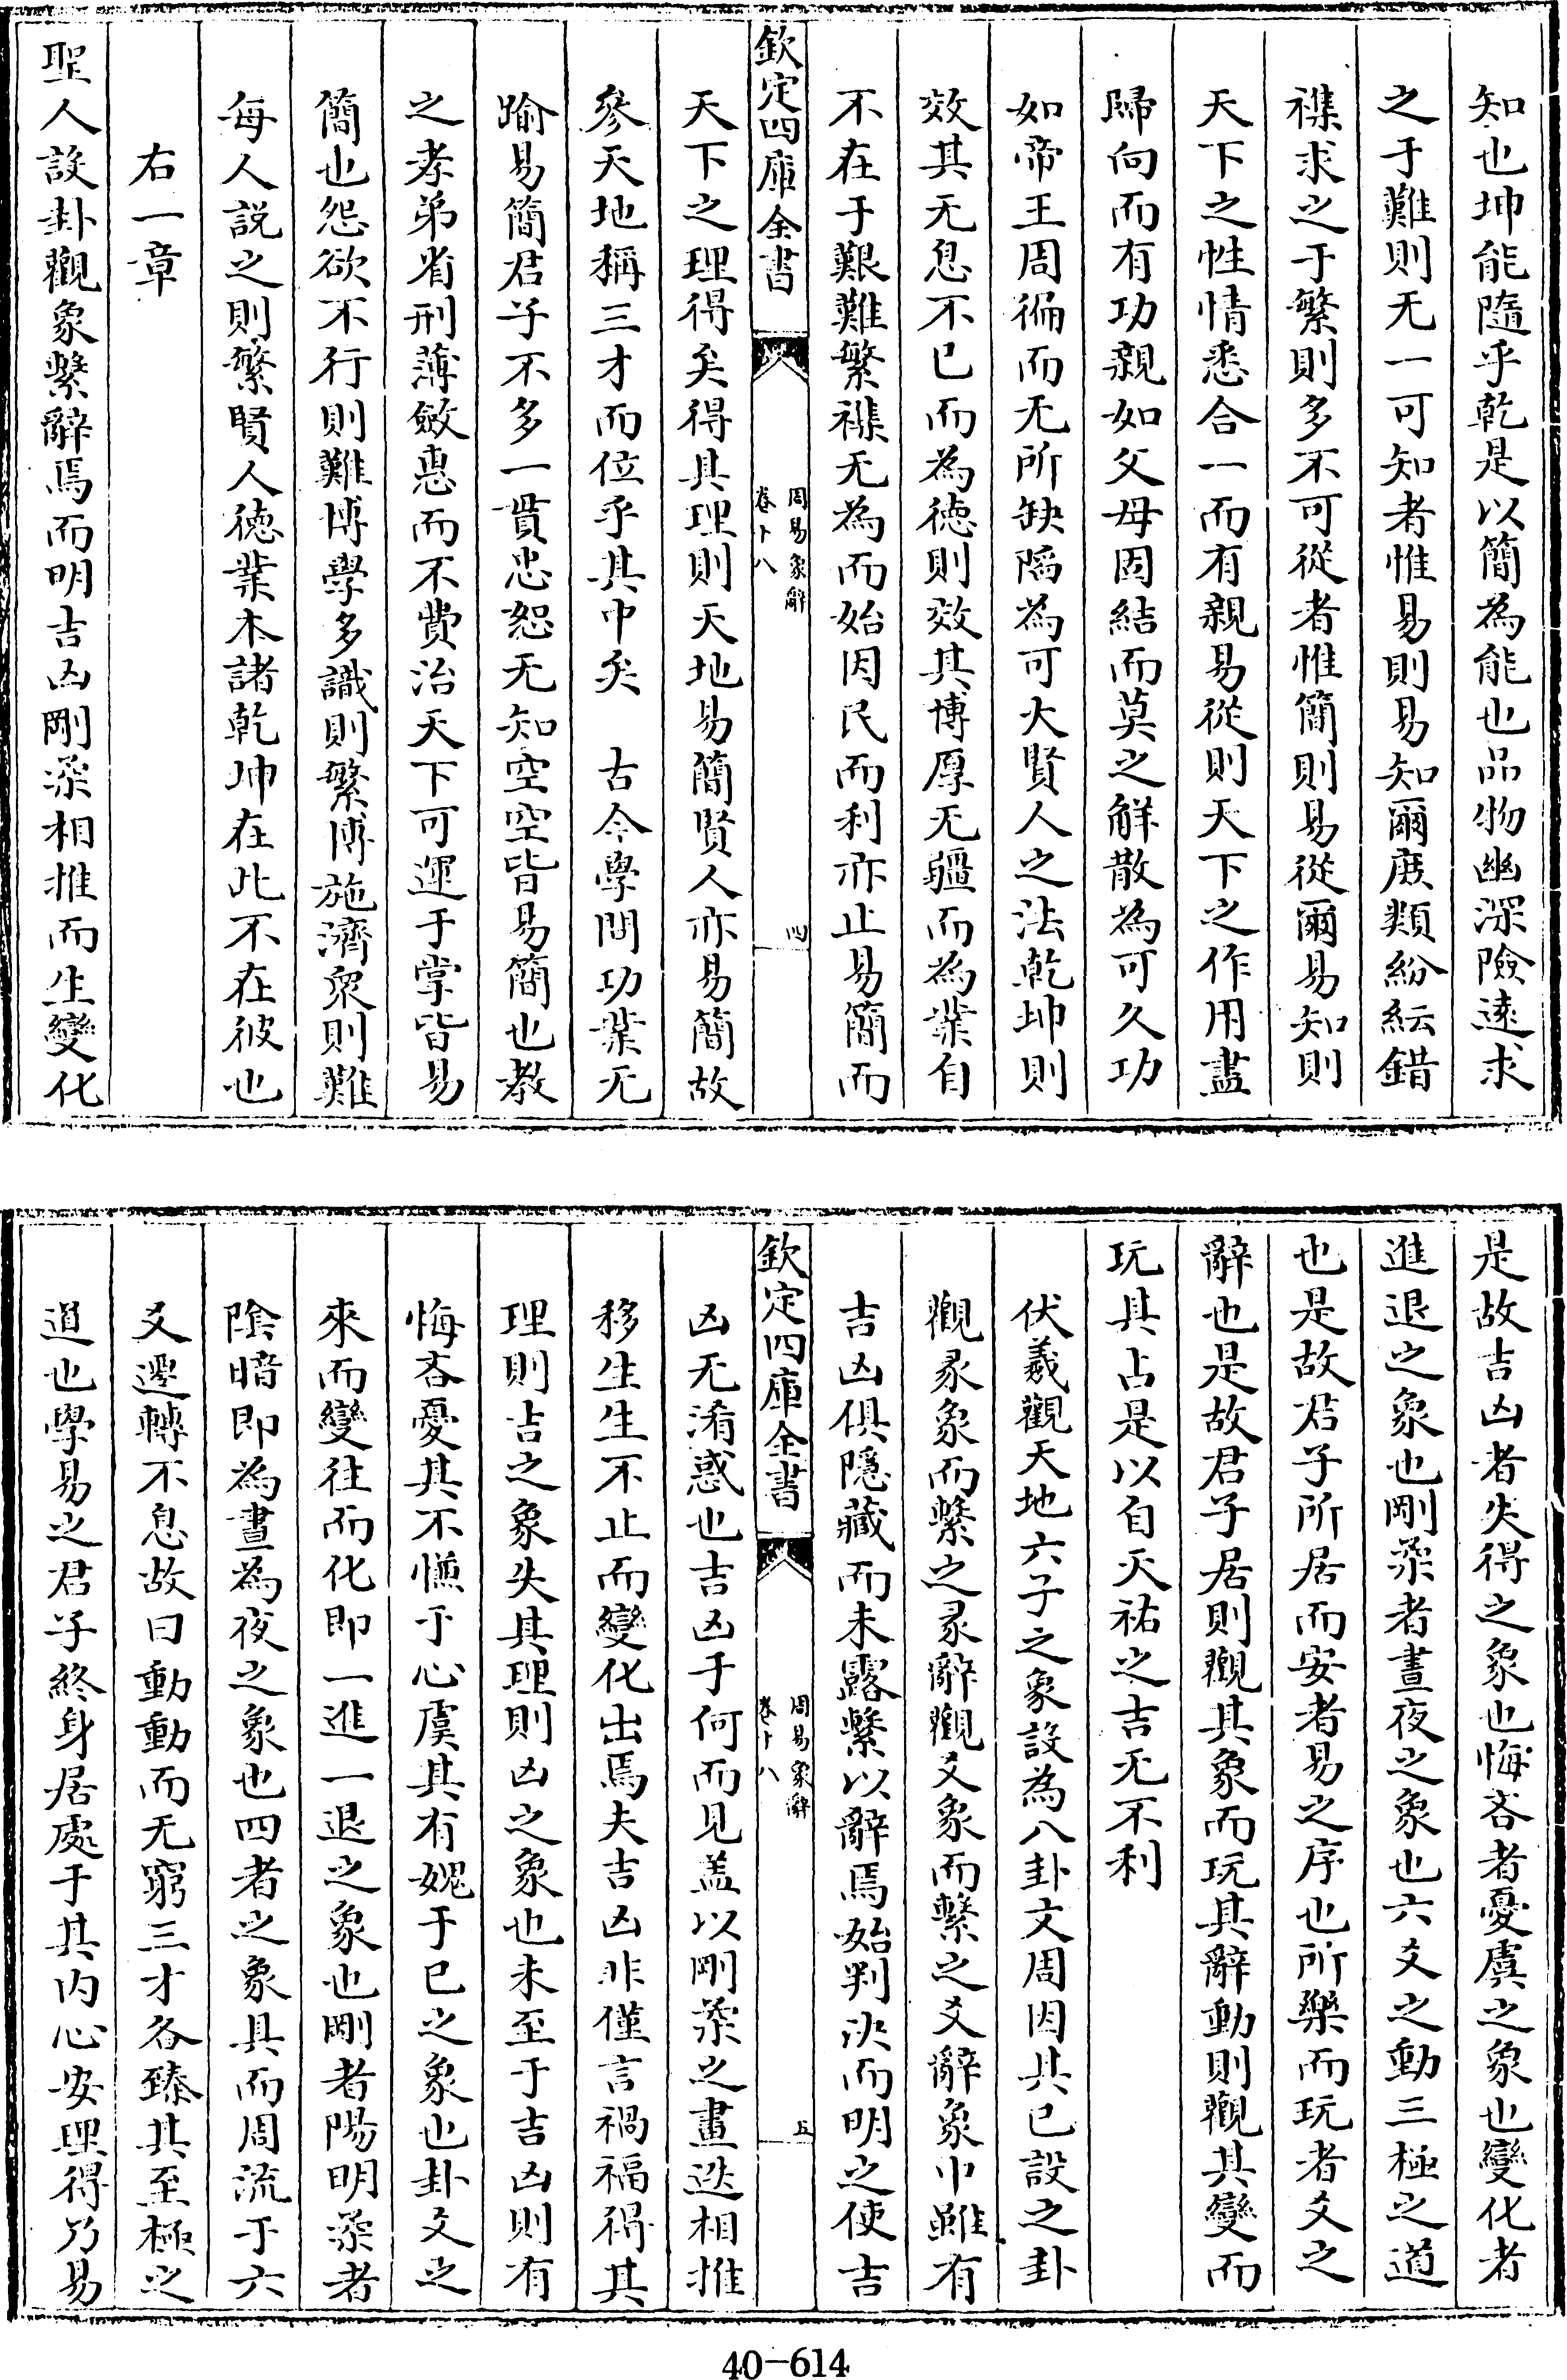 知也坤能隨乎乾是以簡為能也品物幽深險遠求
之于難則无一可知者惟易則易知爾庶類紛紜錯
襍求之于繁則多不可從者惟簡則易從爾易知則
天下之性情悉合一而有親易從則天下之作用盡
歸向而有功親如父母固結而莫之解散為可久功
如帝王周徧而无所缺陷為可大賢人之法乾坤則
效其无息不已而為德則效其博厚无疆而為業自
不在于艱難繁襍无為而始因民而利亦止易簡而
欽定四庫全書
周易象辭
卷十八
四
天下之理得矣得其理則天地易簡賢人亦易簡故
參天地稱三才而位乎其中矣　古今學問功業无
踰易簡君子不多一貫忠恕无知空空皆易簡也教
之孝弟省刑薄斂惠而不費治天下可運于掌皆易
簡也怨欲不行則難博學多識則繁博施濟衆則難
每人說之則繁賢人德業本諸乾坤在此不在彼也
右一章
聖人設卦觀象繫辭焉而明吉凶剛柔相推而生變化
是故吉凶者失得之象也悔吝者憂虞之象也變化者
進退之象也剛柔者晝夜之象也六爻之動三極之道
也是故君子所居而安者易之序也所樂而玩者爻之
辭也是故君子居則觀其象而玩其辭動則觀其變而
玩其占是以自天祐之吉无不利
伏羲觀天地六子之象設為八卦文周因其已設之卦
觀彖象而繫之彖辭觀爻象而繫之爻辭象中雖有
吉凶俱隱藏而未露繫以辭焉始判決而明之使吉
欽定四庫全書
周易象辭
卷十八
五
凶无淆惑也吉凶于何而見盖以剛柔之畫迭相推
移生生不止而變化出焉夫吉凶非僅言禍福得其
理則吉之象失其理則凶之象也未至于吉凶則有
悔吝憂其不慊于心虞其有媿于已之象也卦爻之
來而變往而化即一進一退之象也剛者陽明柔者
陰暗即為晝為夜之象也四者之象具而周流于六
爻遷轉不息故曰動動而无窮三才各臻其至極之
道也學易之君子終身居處于其内心安理得乃易
40-614